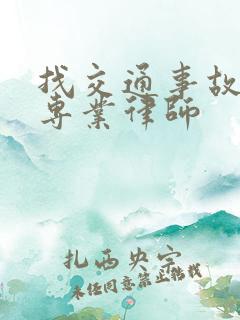 找交通事故
专業律师
扎西央宗
未经同意禁止转载